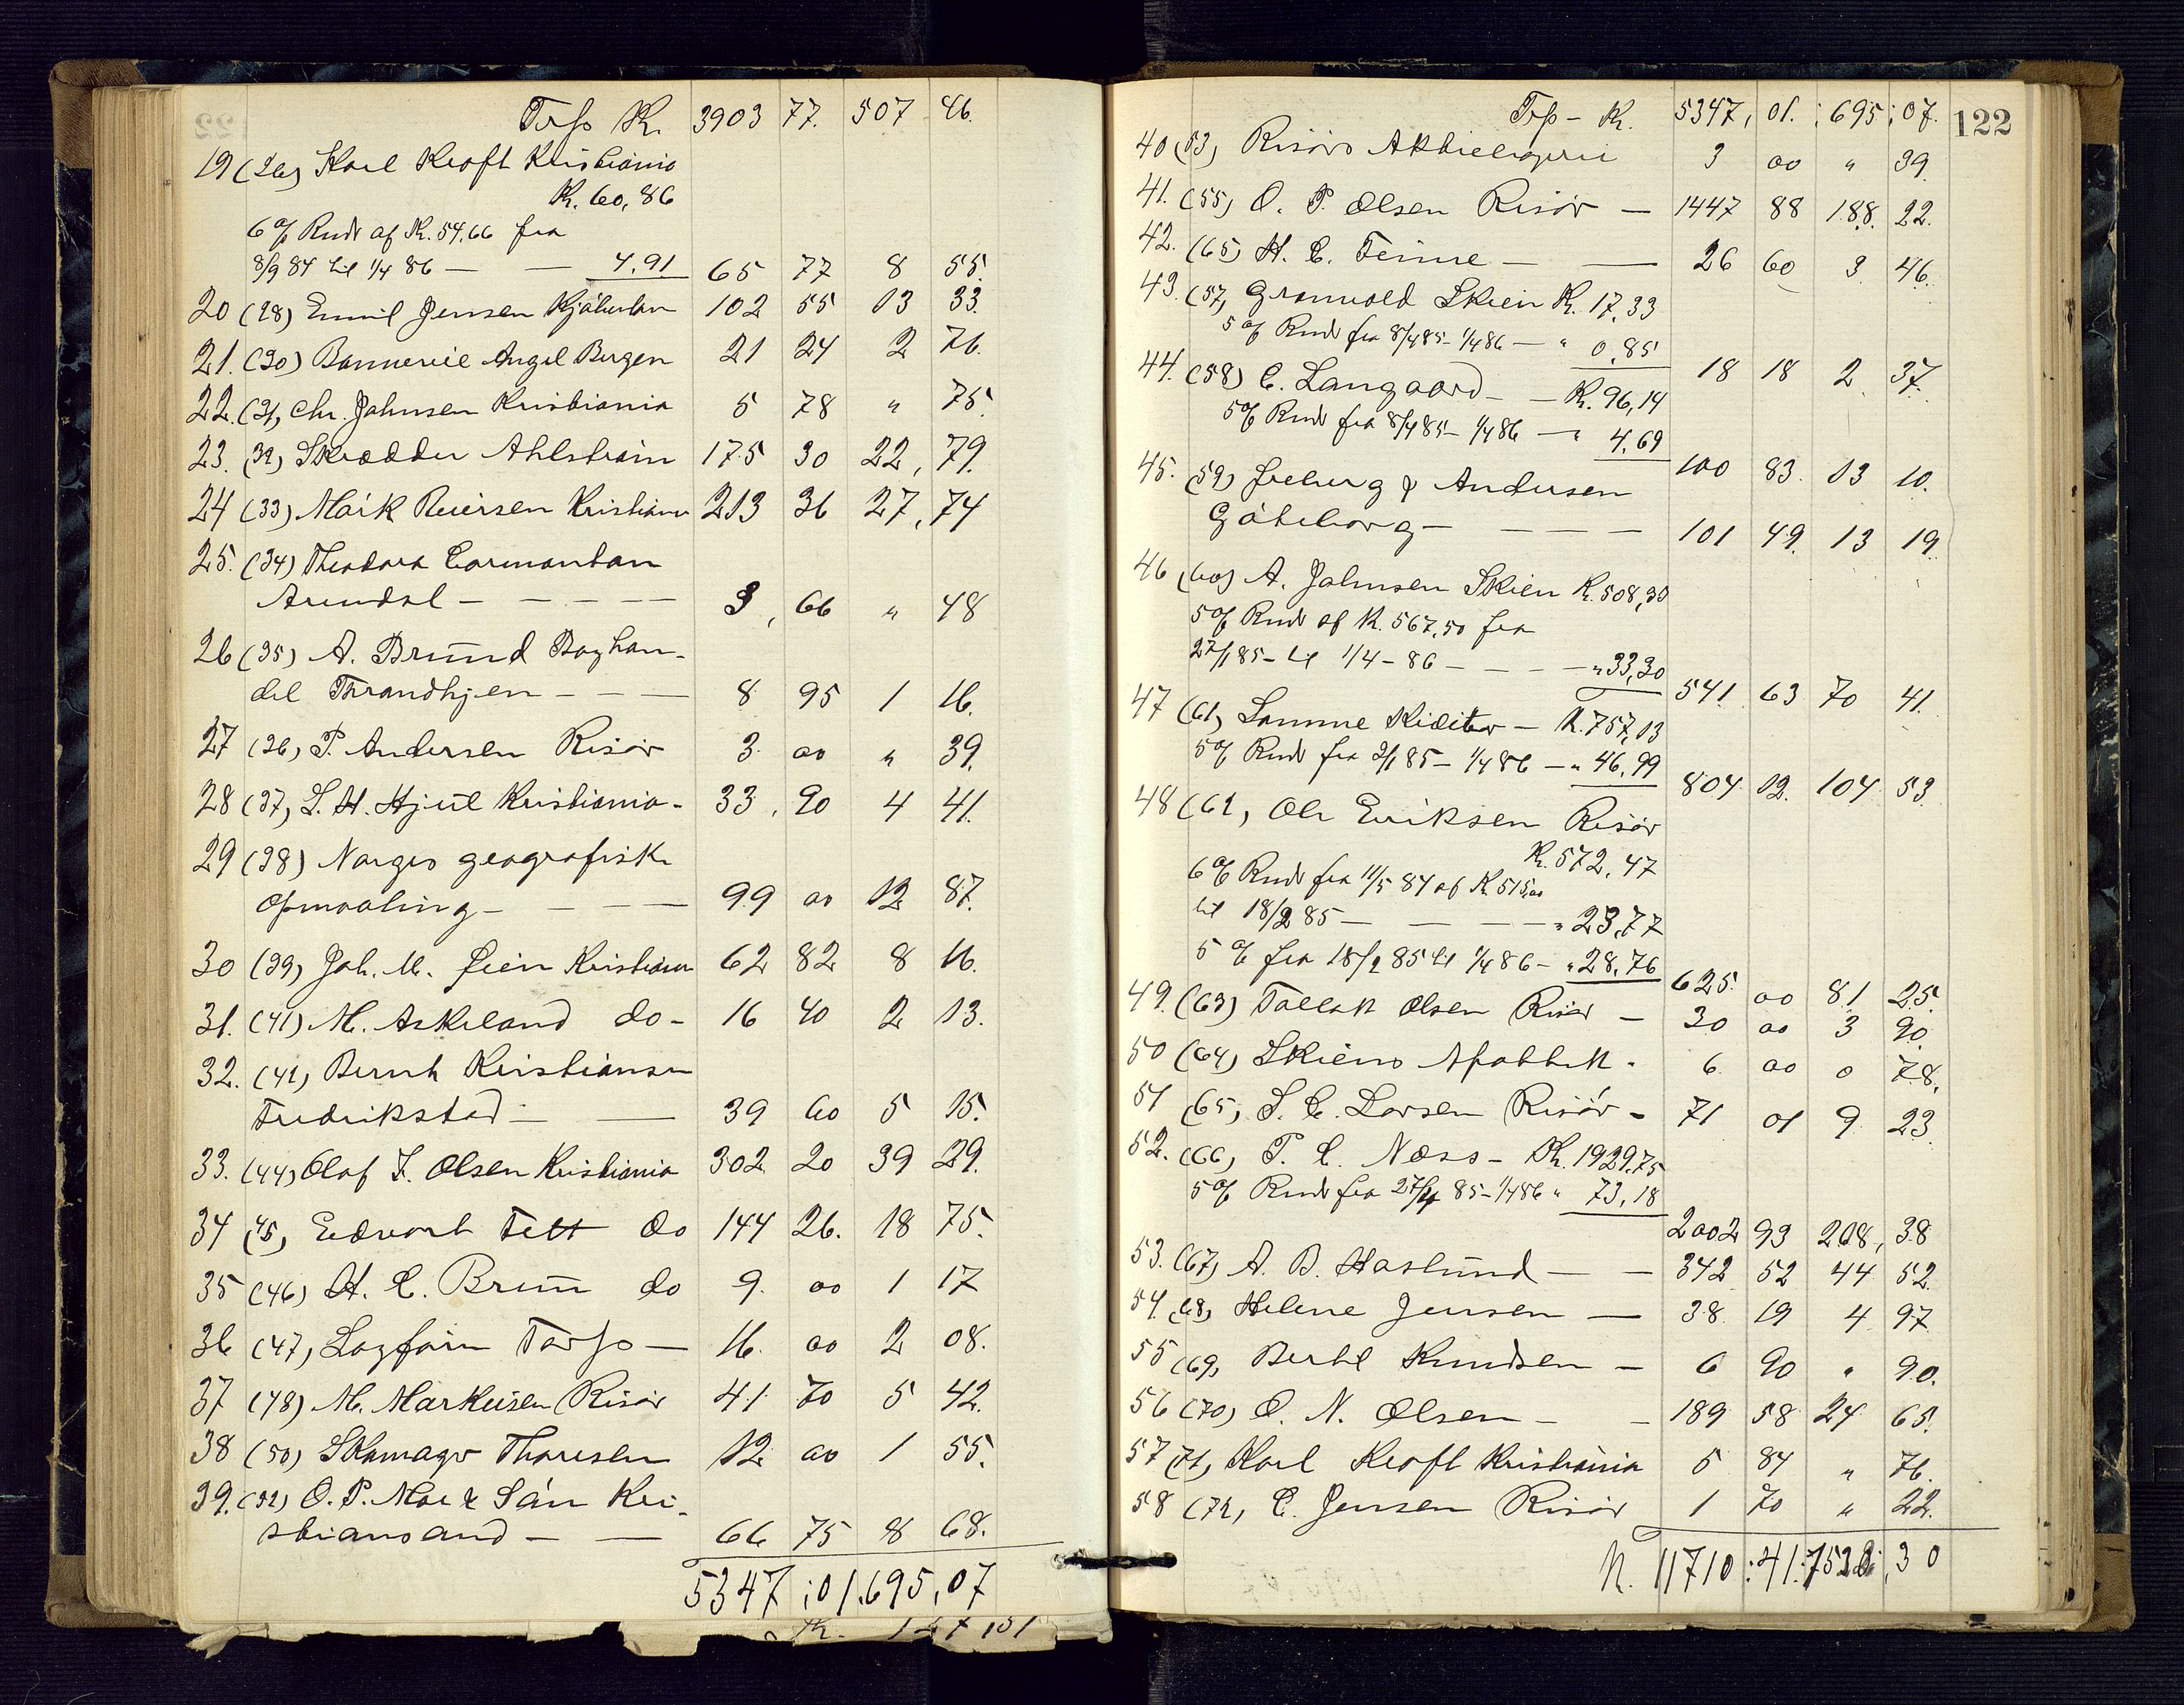 Trfs Kr. 3903 77. 507 46.
19 (26) Karl Kroft Kristiania
Kr. 60,86
6% Rndr af Kr. 54.66 fra
8/9 84 til 1/4 86 — — 4.91 65 77 8 55.
20 (28) Emil Jensen 102 55 13 33.
21. (30) Angel Bergen 21 24 2 76.
22. (31) Chr. Johnsen Kristiania 5 78 " 75.
23. (32) Skrædder Ahlstrøm 175 30 22, 79.
24 (33) Maik Reiersen Kristiania 213 36 27, 74
25. (34) Theodora Cormontan
Arendal — — — — — 3, 66 " 48
26 (35) A. Brund Boghan-
del Throndhjem — — — 8 95 1 16.
27 (36) P. Andersen Risør 3 00 " 39.
28 (37) S. H. Hjul Kristiania - 33, 90 4 41.
29 (38) Norges geografisk
Opmaaling — — — — 99 00 12 87.
30 (39) Joh. M. Øien Kristiania 62 82 8 16.
31. (41) M. Askeland do - 16 40 2 13.
32. (42) Bernh Kristiansen
Fredrikstad — — 39 60 5 15.
33. (44) Olaf F. Olsen Kristiania 302 20 39 29.
34 (45) Edvart Fett do 144 26. 18 75.
35 (46) H. C. Brun do 9. 00 1 17
36 (47) Lazforn Torfs — 16. 00 2 08.
37 (48) M. Markusen Risør 41 70 5 42.
38 (50) Skomagr Thoresen 12 00 1 55.
39. (52) O. P. Moe & Søn Kri-
stiansand — — 66 75 8 68.
5347 : 01. 695, 07
Kr. 127,51
122
Trfs - Kr. 5347, 01. : 695 ; 07.
40 (53) Risørs 3 00 " 39.
41. (55) O. P. Olsen Risør — 1447 88 188. 22.
42. (65) H. C. Finne — — 26 60 3 46.
43. (57) Gronvold Skien Kr. 17,33
5% Rndr fra 8/4 85 - 1/4 86 — " 0,85 18 18 2 37.
44. (58) C. Langaard — — Kr. 96,14
5% Rndr fra 8/4 85 - 1/4 86 — " 4,69 100 83. 13 10.
45. (59) & Andersen
Gøteborg — — — — 101 49. 13 19.
46 (60) A. Johnsen Skien Kr. 508,33
5% Rndr af Kr. 567,50 fra
27/1 85 - til 1/4 - 86 — — — — " 33,30 541 63 70 41.
47 (61) Samme Kreditor — Kr. 757,13
5% Rndr fra 2/1 85 - 1/4 86 — " 46,99 804 12. 104 53.
48 (62) Ole Eriksen Risør
Kr. 572,47
6% Rndr fra 11/5 84 af Kr. 515,00
til 18/2 85 — — — — " 23,77
5% fra 18/2 85 til 1/4 86 — " 28,76 625. 00 81 25.
49. (63) Tallak Olsen Risør — 30 00 3 90.
50 (64) Skiens Apothek. 6 00 0 78.
51 (65) S. C. Larsen Risør - 71 01 9 23.
52. (66) P. C. Næss - Kr. 1929.75
5% Rndr fra 27/4 85 - 1/4 86 " 73,18
2002 93 208, 38
53. (67) A. B. Haslund — — 342 52 44 52.
54. (68) Helene Jensen — 38 19 4 97.
55 (69) Bertel Knudsen — 6 90 " 90.
56 (70) O. N. Olsen — — 189 58 24 65.
57 (71) Karl Kroft Kristiania 5 84 " 76.
58 (72) C. Jensen Risør 1 70 " 22.
Kr. 11710 : 41 : 1522 , 30